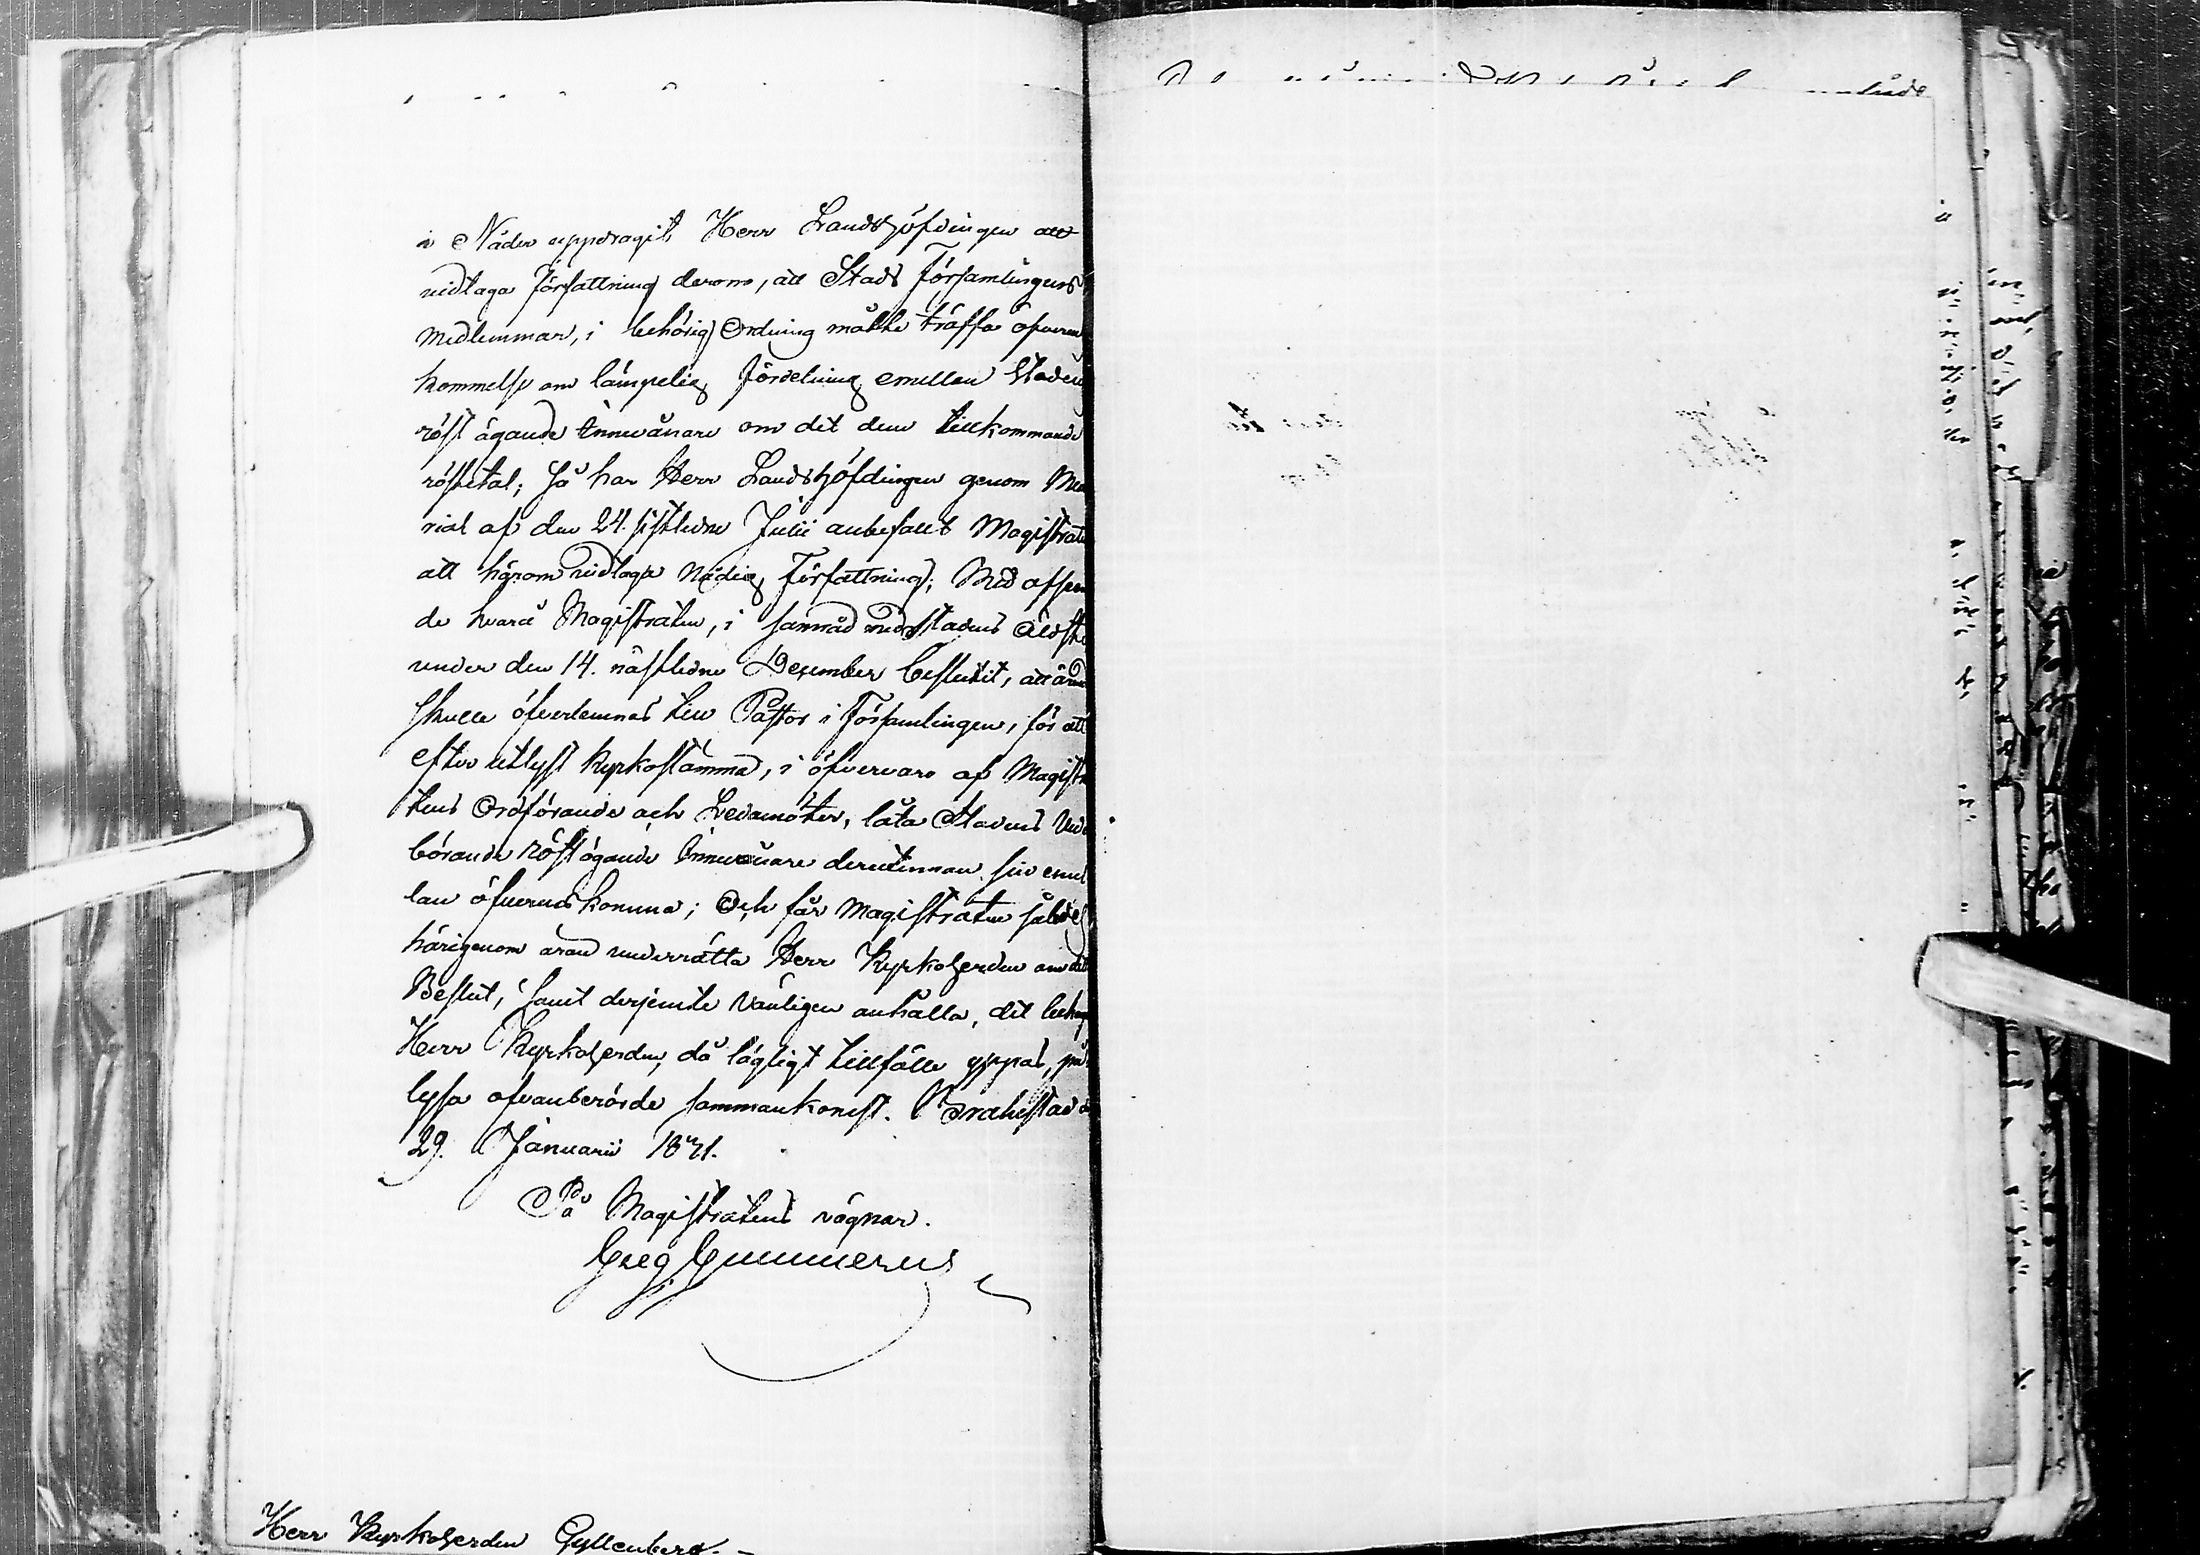 i Nåder uppdragit Herr Landshöfdingen att
vidtaga författning derom, att Stads Församlingens
medlemmar, i behörig Ordning måtte träffa öfverens
kommelse om lämpelig fördelning emellan Stadens
röst ägande Innevånare om det dem tillkommande
röstetal; Så har Herr Landshöfdingen genom Me
rial af den 24. sistledne Julii anbefallt Magistraten
att härom vidtaga nödig Författning; Med afseen
de hvarå Magistraten, i samråd med stadens Äldste
under den 14. nästledne December beslutit, att ärend
skulle öfverlemnas till Pastor i Församlingen, för att
efter utlyst Kyrkostämma, i öfvervaro af Magistra
tens Ordförande och Ledamöter, låta Stadens Veder
börande röst ägande Innevånare derutinnan sin emel
lan öfverenskomma; Och får Magistraten således
härigenom äran underrätta Herr Kyrkoherden om det
Beslut, samt derjemte vänligen anhålla, det behag
Herr Kyrkoherden, då lägligt tillfälle yppas, på
lysa ofvanberörde sammankomst. Brahestad d
29. Januarii 1841.
På Magistratens vägnar.
Greg Gummerus
Herr Kyrkoherden Gyllenberg.